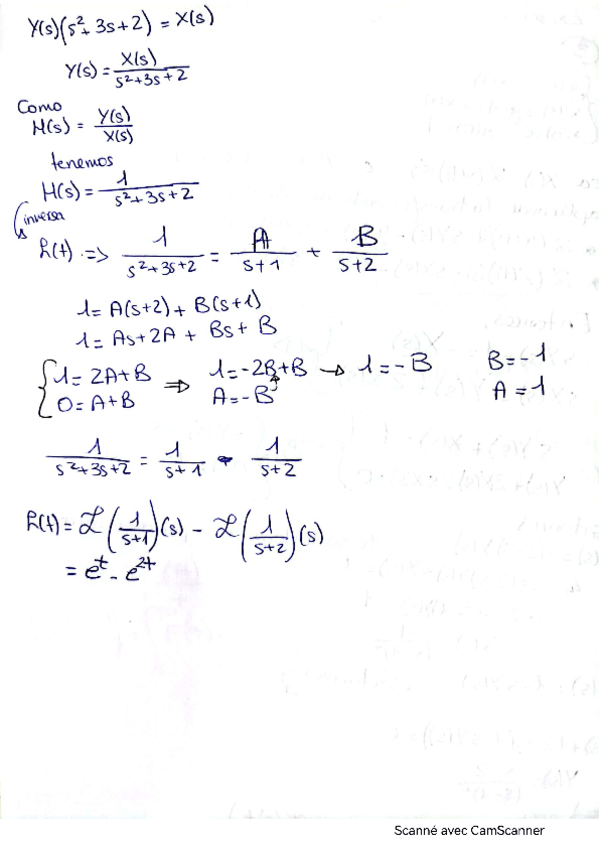 Y(s)(s²+3s+2) = X(s)
Y(s) = X(s)/(s²+3s+2)
Como
H(s) = Y(s)/X(s)
tenemos
H(s) = 1/(s²+3s+2)
inversa
h(t) => 1/(s²+3s+2) = A/(s+1) + B/(s+2)
1 = A(s+2) + B(s+1)
1 = As+2A + Bs + B
{1 = 2A+B => 1=-2B+B → 1=-B B=-1
{0 = A+B A=-B A=1
1/(s²+3s+2) = 1/(s+1) - 1/(s+2)
h(t) = ℒ(1/(s+1))(s) - ℒ(1/(s+2))(s)
= e^t - e^2t
Scanné avec CamScanner